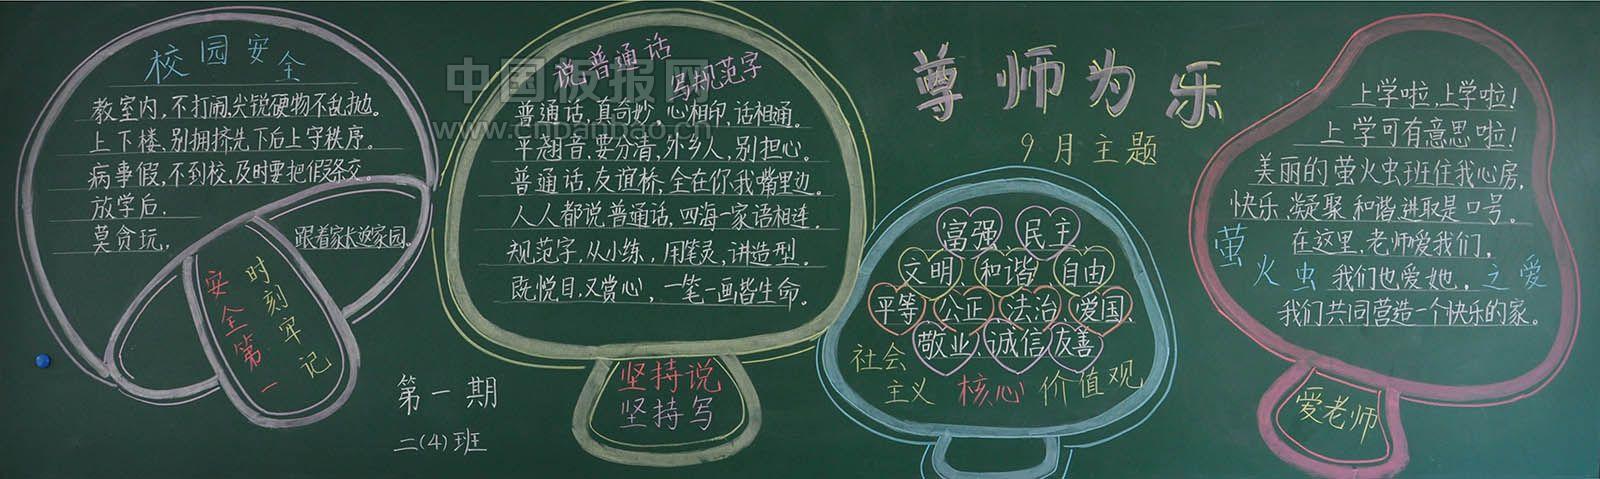 校园安全
教室内,不打闹,尖锐硬物不乱抛。
上下楼,别拥挤,先下后上守秩序。
病事假,不到校,及时要把假条交。
放学后,
莫贪玩,
跟着家长返家园。
时刻牢记
安全第一
第一期
二(4)班
中国板报网
www.cnbanbao.cn
说普通话
写规范字
普通话,真奇妙,心相印,话相通。
平翘音,要分清,外乡人,别担心。
普通话,友谊桥,全在你我嘴里边。
人人都说普通话,四海一家语相连。
规范字,从小练,用笔灵,讲造型。
既悦目,又赏心,一笔一画皆生命。
坚持说
坚持写
尊师为乐
9月主题
富强、民主、
文明、和谐、自由
平等、公正、法治、爱国、
敬业、诚信、友善
社会
主义 核心 价值观
上学啦,上学啦!
上学可有意思啦!
美丽的萤火虫班住我心房,
快乐、凝聚、和谐、进取是口号。
在这里,老师爱我们,
我们也爱她,
我们共同营造一个快乐的家。
萤火虫之爱
爱老师